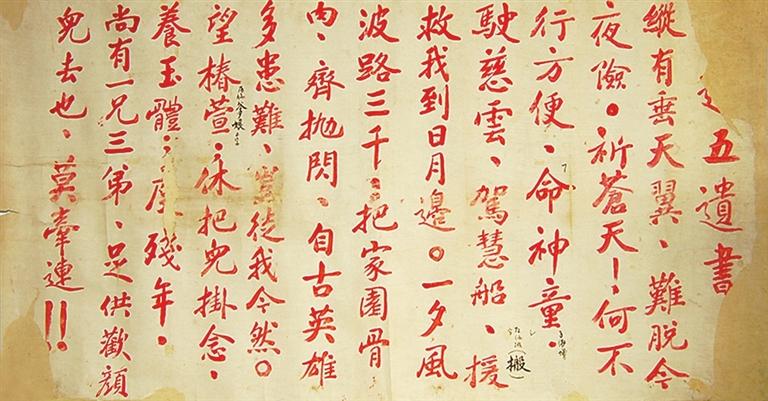 五遺書
縱有垂天翼、難脫今
夜險。祈蒼天！何不
行方便、命神童、
駛慈雲、駕慧船、援
(搬)
救我到日月邊。一夕風
波路三千、把家園骨
肉、齊拋閃、自古英雄
多患難、豈徒我今然。
望椿萱、休把兒掛念、
養玉體、度殘年。
尚有一兄三弟、足供歡顏
兒去也、莫牽連!!